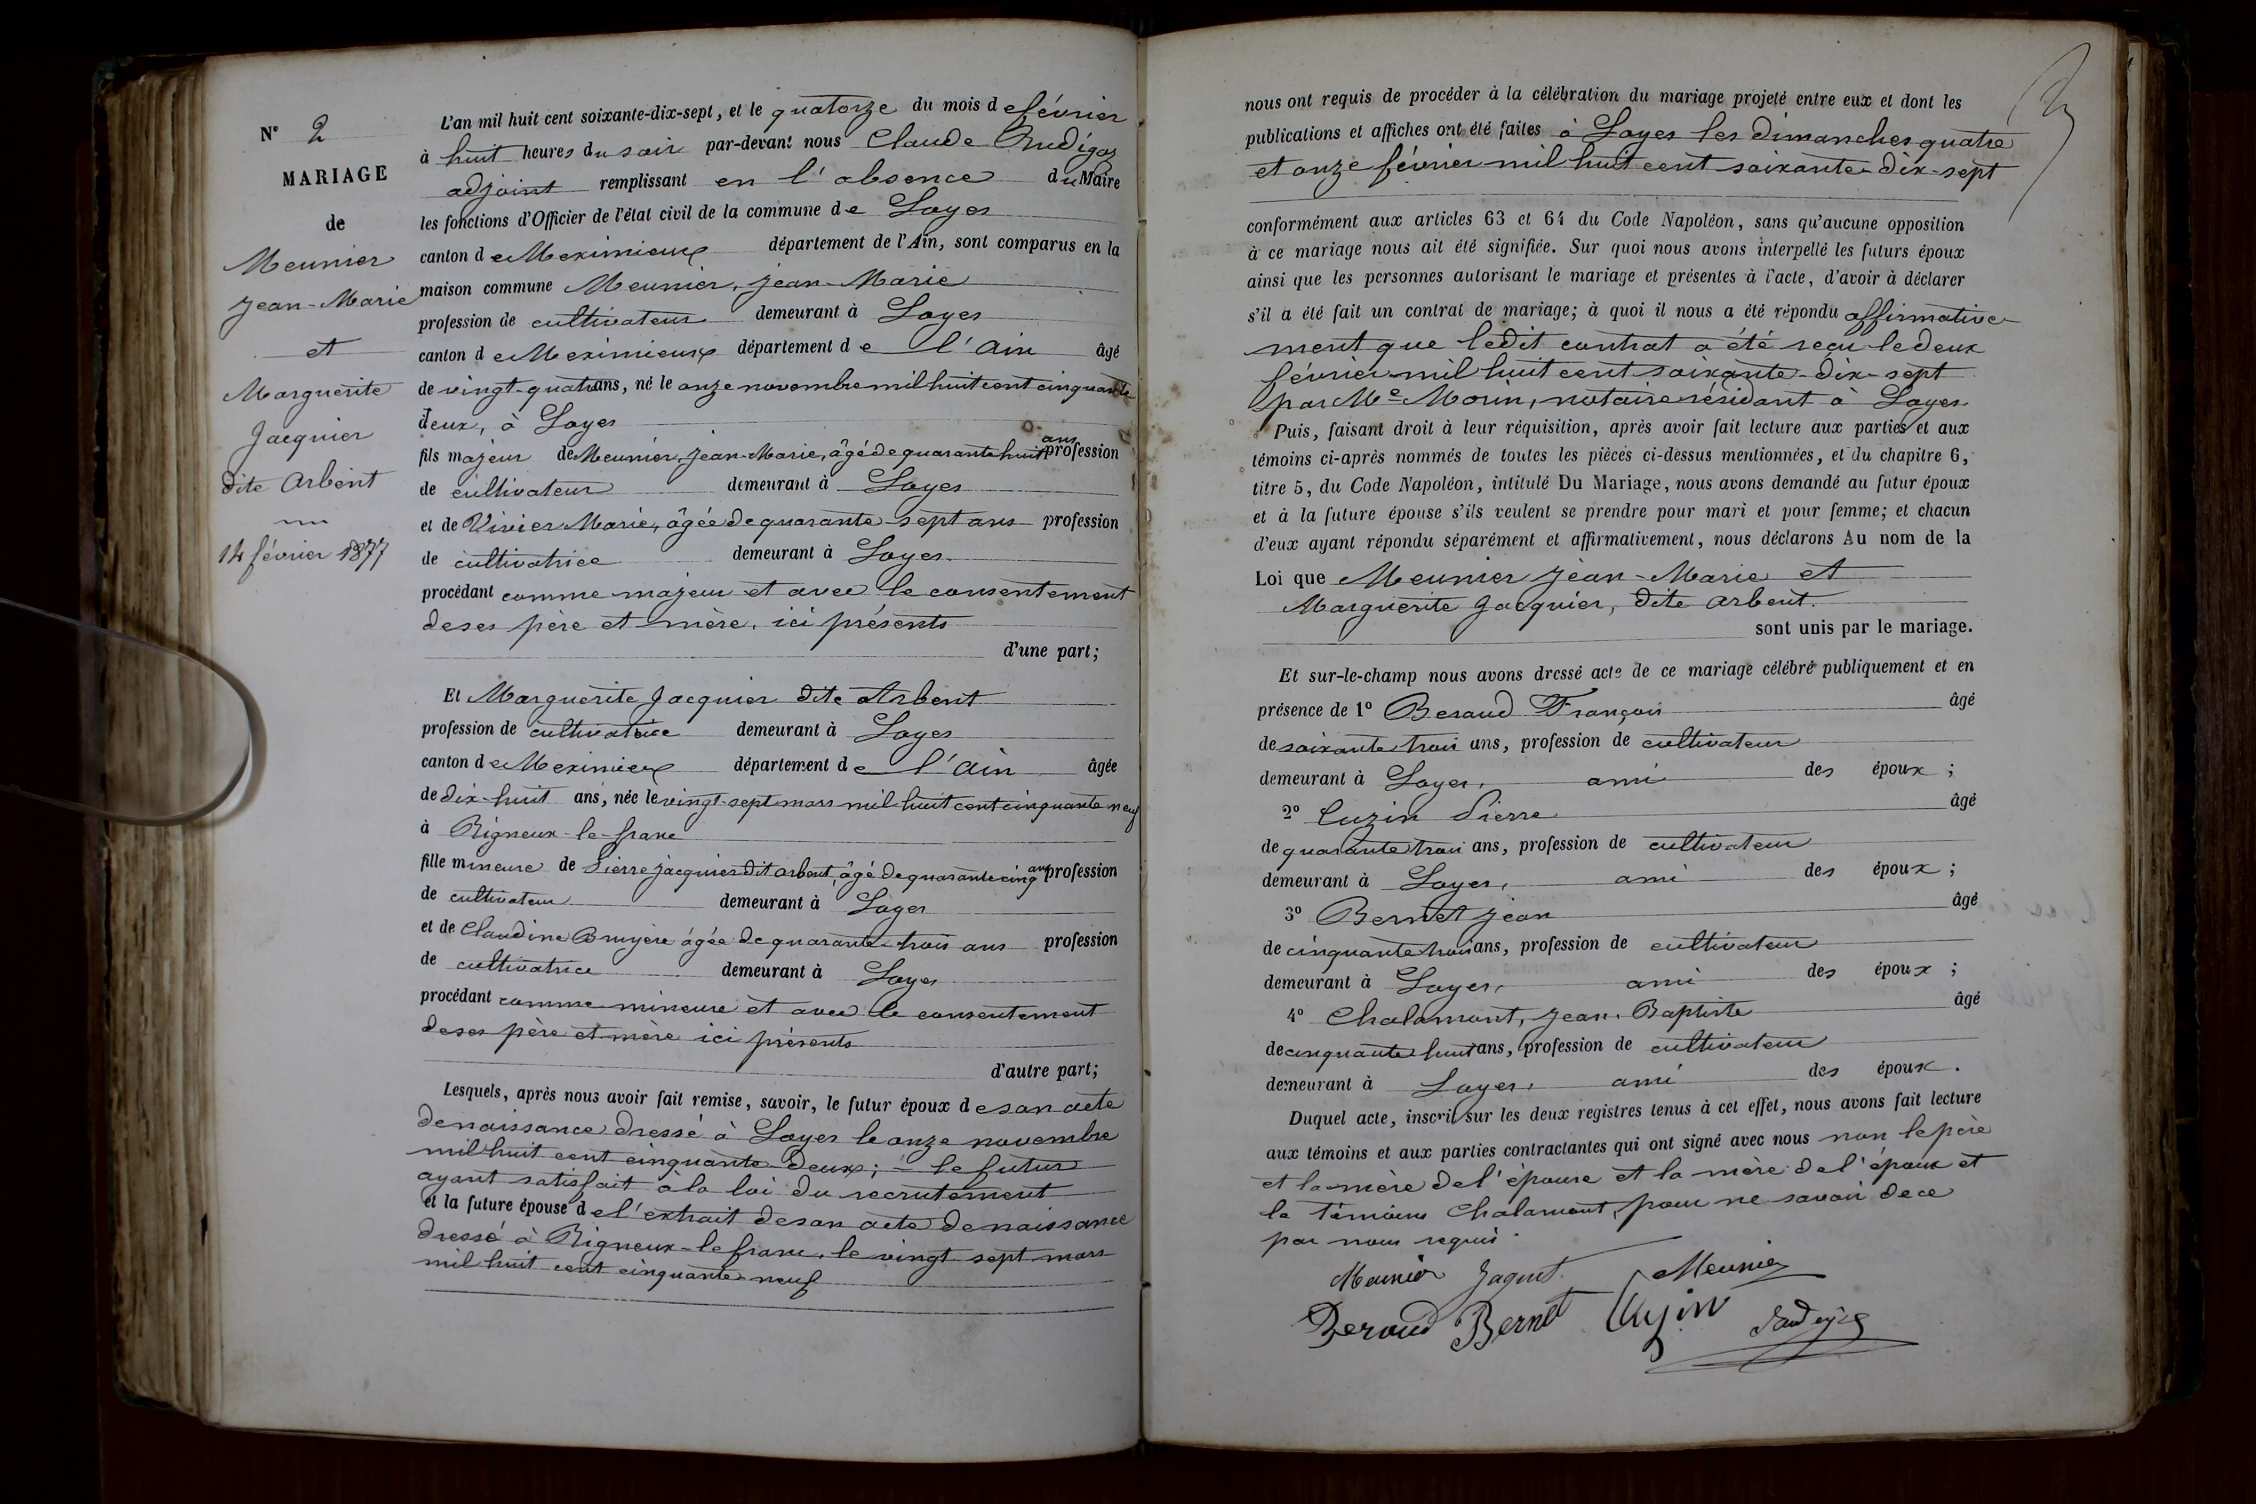 N° 2
MARIAGE
de
Meunier
Jean-Marie
et
Marguerite
Jacquier
dite Arbent
14 février 1877
L'an mil huit cent soixante-dix-sept, et le quatorze du mois de février
à huit heures du soir par-devant nous Claude
adjoint remplissant en l'absence du Maire
les fonctions d'Officier de l'état civil de la commune de Loyes
canton de Meximieux département de l'Ain, sont comparus en la
maison commune Meunier, Jean-Marie
profession de cultivateur demeurant à Loyes
canton de Meximieux département de l'Ain âgé
de vingt-quatre ans, né le onze novembre mil huit cent cinquante
deux, à Loyes
fils majeur de Meunier, Jean-Marie, âgé de quarante huit ans profession
de cultivateur demeurant à Loyes
et de Vivier Marie, âgée de quarante-sept ans profession
de cultivatrice demeurant à Loyes
procédant comme majeur et avec le consentement
de ses père et mère, ici présents
d'une part;
Et Marguerite Jacquier dite Arbent
profession de cultivatrice demeurant à Loyes
canton de Meximieux département de l'Ain âgée
de dix-huit ans, née le vingt-sept mars mil huit cent cinquante neuf
à Rigneux-le-franc
fille mineure de Pierre Jacquier dit Arbent, âgé de quarante cinq ans profession
de cultivateur demeurant à Loyes
et de Claudine Bruyère âgée de quarante-trois ans profession
de cultivatrice demeurant à Loyes
procédant comme mineure et avec le consentement
de ses père et mère ici présents
d'autre part;
Lesquels, après nous avoir fait remise, savoir, le futur époux de son acte
de naissance dressé à Loyes le onze novembre
mil huit cent cinquante-deux; – le futur
ayant satisfait à la loi du recrutement
et la future épouse de l'extrait de son acte de naissance
dressé à Rigneux-le franc, le vingt sept mars
mil huit cent cinquante-neuf
nous ont requis de procéder à la célébration du mariage projeté entre eux et dont les
publications et affiches ont été faites à Loyes les dimanches quatre
et onze février mil huit cent soixante-dix-sept
conformément aux articles 63 et 64 du Code Napoléon, sans qu'aucune opposition
à ce mariage nous ait été signifiée. Sur quoi nous avons interpellé les futurs époux
ainsi que les personnes autorisant le mariage et présentes à l'acte, d'avoir à déclarer
s'il a été fait un contrat de mariage; à quoi il nous a été répondu affirmative-
ment que ledit contrat a été reçu le deux
février mil huit cent soixante-dix-sept
par Me Morin, notaire résidant à Loyes
Puis, faisant droit à leur réquisition, après avoir fait lecture aux parties et aux
témoins ci-après nommés de toutes les pièces ci-dessus mentionnées, et du chapitre 6,
titre 5, du Code Napoléon, intitulé Du Mariage, nous avons demandé au futur époux
et à la future épouse s'ils veulent se prendre pour mari et pour femme; et chacun
d'eux ayant répondu séparément et affirmativement, nous déclarons Au nom de la
Loi que Meunier Jean-Marie et
Marguerite Jacquier, dite Arbent.
sont unis par le mariage.
Et sur-le-champ nous avons dressé acte de ce mariage célébré publiquement et en
présence de 1° Beraud François âgé
de soixante trois ans, profession de cultivateur
demeurant à Loyes, ami des époux;
2° Cuzin Pierre âgé
de quarante trois ans, profession de cultivateur
demeurant à Loyes, ami des époux;
3° Bernet Jean âgé
de cinquante trois ans, profession de cultivateur
demeurant à Loyes, ami des époux;
4° Chalamont, Jean-Baptiste âgé
de cinquante huit ans, profession de cultivateur
demeurant à Loyes, ami des époux.
Duquel acte, inscrit sur les deux registres tenus à cet effet, nous avons fait lecture
aux témoins et aux parties contractantes qui ont signé avec nous non le père
et la mère de l'épouse et la mère de l'époux et
le témoins Chalamont, pour ne savoir de ce
par nous requis.
Meunier Jaquet Meunier
Beraud Bernet Cuzin